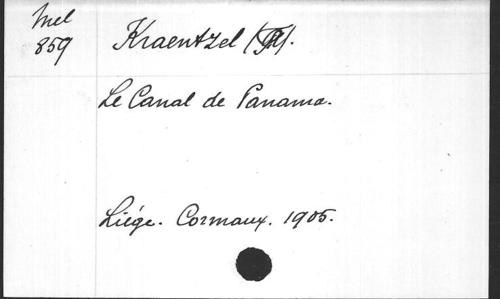 Mel
859
Kraentzel
Le Canal de Panama.
Liége. Cormaux. 1905.